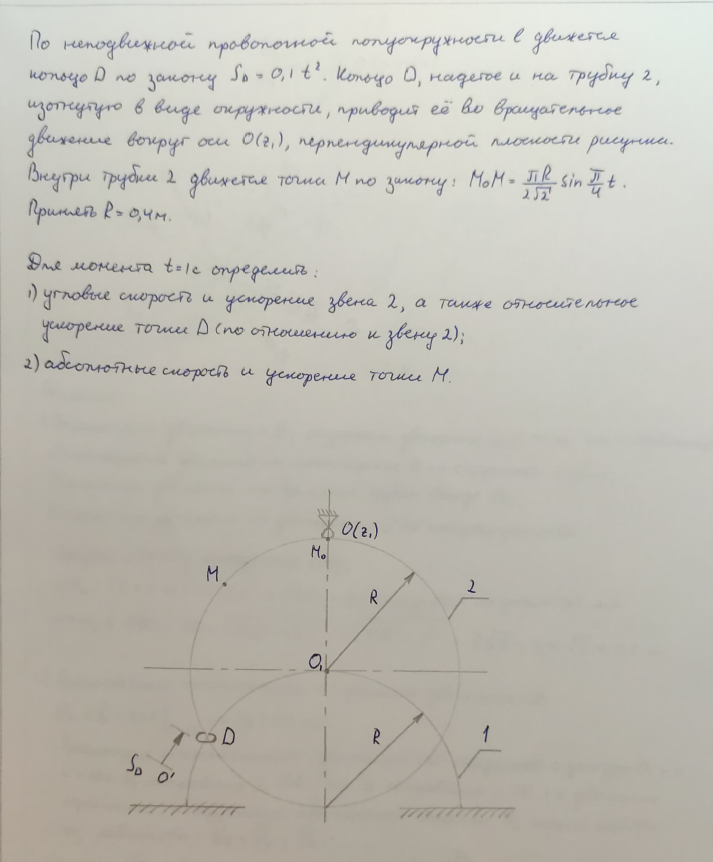 По неподвижной проволочной полуокружности 1 движется
кольцо D по закону S_D = 0,1 t². Кольцо D, надетое и на трубку 2,
изогнутую в виде окружности, приводит её во вращательное
движение вокруг оси O(z₁), перпендикулярной плоскости рисунка.
Внутри трубки 2 движется точка M по закону: M₀M = πR/2√2 sin π/4 t.
Принять R = 0,4 м.
Для момента t=1с определить:
1) угловые скорость и ускорение звена 2, а также относительное
ускорение точки D (по отношению к звену 2);
2) абсолютные скорость и ускорение точки M.
O(z₁)
M₀
M
R
2
O₁
D
R
1
S_D
O'